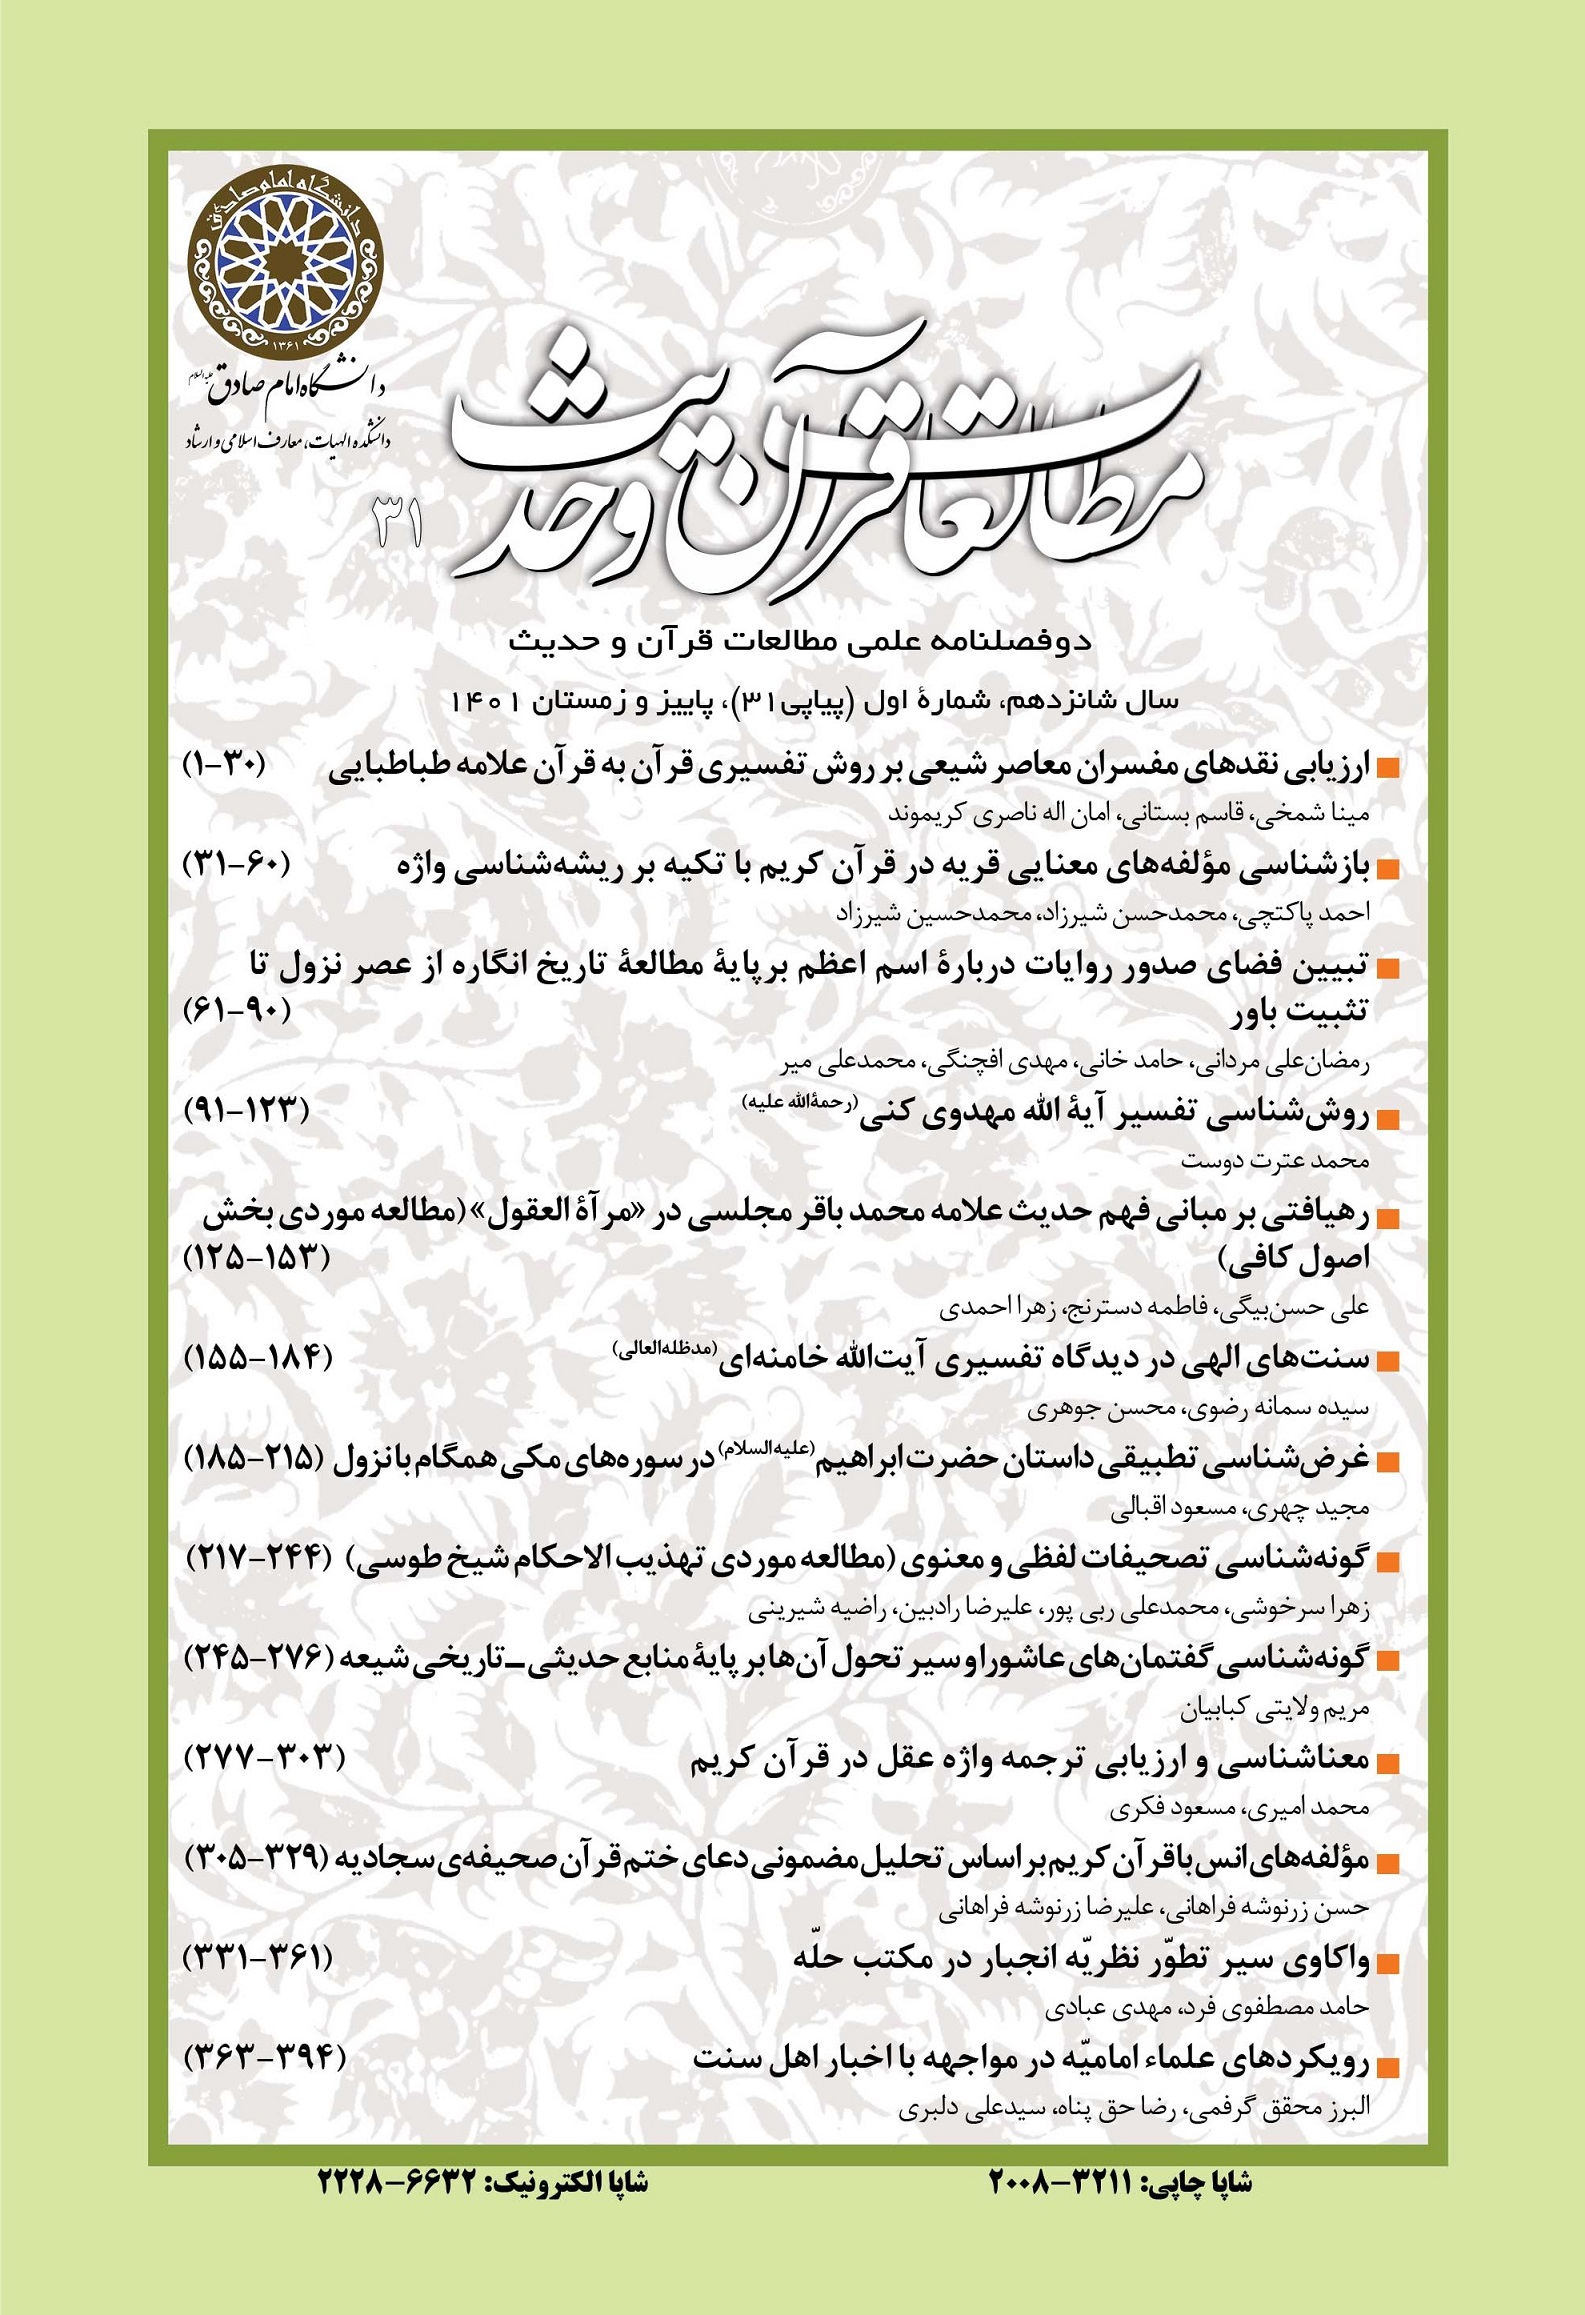 دانشگاه امام صادق
۱۳۶۱
دانشگاه امام صادق علیه‌السلام
دانشکده الهیات، معارف اسلامی و ارشاد
مطالعات قرآن و حدیث
۳۱
دوفصلنامه علمی مطالعات قرآن و حدیث
سال شانزدهم، شمارۀ اول (پیاپی۳۱)، پاییز و زمستان ۱۴۰۱
ارزیابی نقدهای مفسران معاصر شیعی بر روش تفسیری قرآن به قرآن علامه طباطبایی (۱-۳۰)
مینا شمخی، قاسم بستانی، امان اله ناصری کریموند
بازشناسی مؤلفه‌های معنایی قریه در قرآن کریم با تکیه بر ریشه‌شناسی واژه (۳۱-۶۰)
احمد پاکتچی، محمدحسن شیرزاد، محمدحسین شیرزاد
تبیین فضای صدور روایات دربارۀ اسم اعظم برپایۀ مطالعۀ تاریخ انگاره از عصر نزول تا
تثبیت باور (۶۱-۹۰)
رمضان‌علی مردانی، حامد خانی، مهدی افچنگی، محمدعلی میر
روش‌شناسی تفسیر آیةالله مهدوی کنی (رحمةالله علیه) (۹۱-۱۲۳)
محمد عترت دوست
رهیافتی بر مبانی فهم حدیث علامه محمد باقر مجلسی در «مرآة العقول» (مطالعه موردی بخش
اصول کافی) (۱۲۵-۱۵۳)
علی حسن‌بیگی، فاطمه دسترنج، زهرا احمدی
سنت‌های الهی در دیدگاه تفسیری آیت‌الله خامنه‌ای (مدظله‌العالی) (۱۵۵-۱۸۴)
سیده سمانه رضوی، محسن جوهری
غرض‌شناسی تطبیقی داستان حضرت ابراهیم (علیه‌السلام) در سوره‌های مکی همگام با نزول (۱۸۵-۲۱۵)
مجید چهری، مسعود اقبالی
گونه‌شناسی تصحیفات لفظی و معنوی (مطالعه موردی تهذیب الاحکام شیخ طوسی) (۲۱۷-۲۴۴)
زهرا سرخوشی، محمدعلی ربی پور، علیرضا رادبین، راضیه شیرینی
گونه‌شناسی گفتمان‌های عاشورا و سیر تحول آن‌ها بر پایۀ منابع حدیثی ـ تاریخی شیعه (۲۴۵-۲۷۶)
مریم ولایتی کبابیان
معناشناسی و ارزیابی ترجمه واژه عقل در قرآن کریم (۲۷۷-۳۰۳)
محمد امیری، مسعود فکری
مؤلفه‌های انس با قرآن کریم بر اساس تحلیل مضمونی دعای ختم قرآن صحیفه‌ی سجادیه (۳۰۵-۳۲۹)
حسن زرنوشه فراهانی، علیرضا زرنوشه فراهانی
واکاوی سیر تطوّر نظریّه انجبار در مکتب حلّه (۳۳۱-۳۶۱)
حامد مصطفوی فرد، مهدی عبادی
رویکردهای علماء امامیّه در مواجهه با اخبار اهل سنت (۳۶۳-۳۹۴)
البرز محقق گرفمی، رضا حق پناه، سیدعلی دلبری
شاپا چاپی: ۲۰۰۸-۳۲۱۱ شاپا الکترونیک: ۲۲۲۸-۶۶۳۲